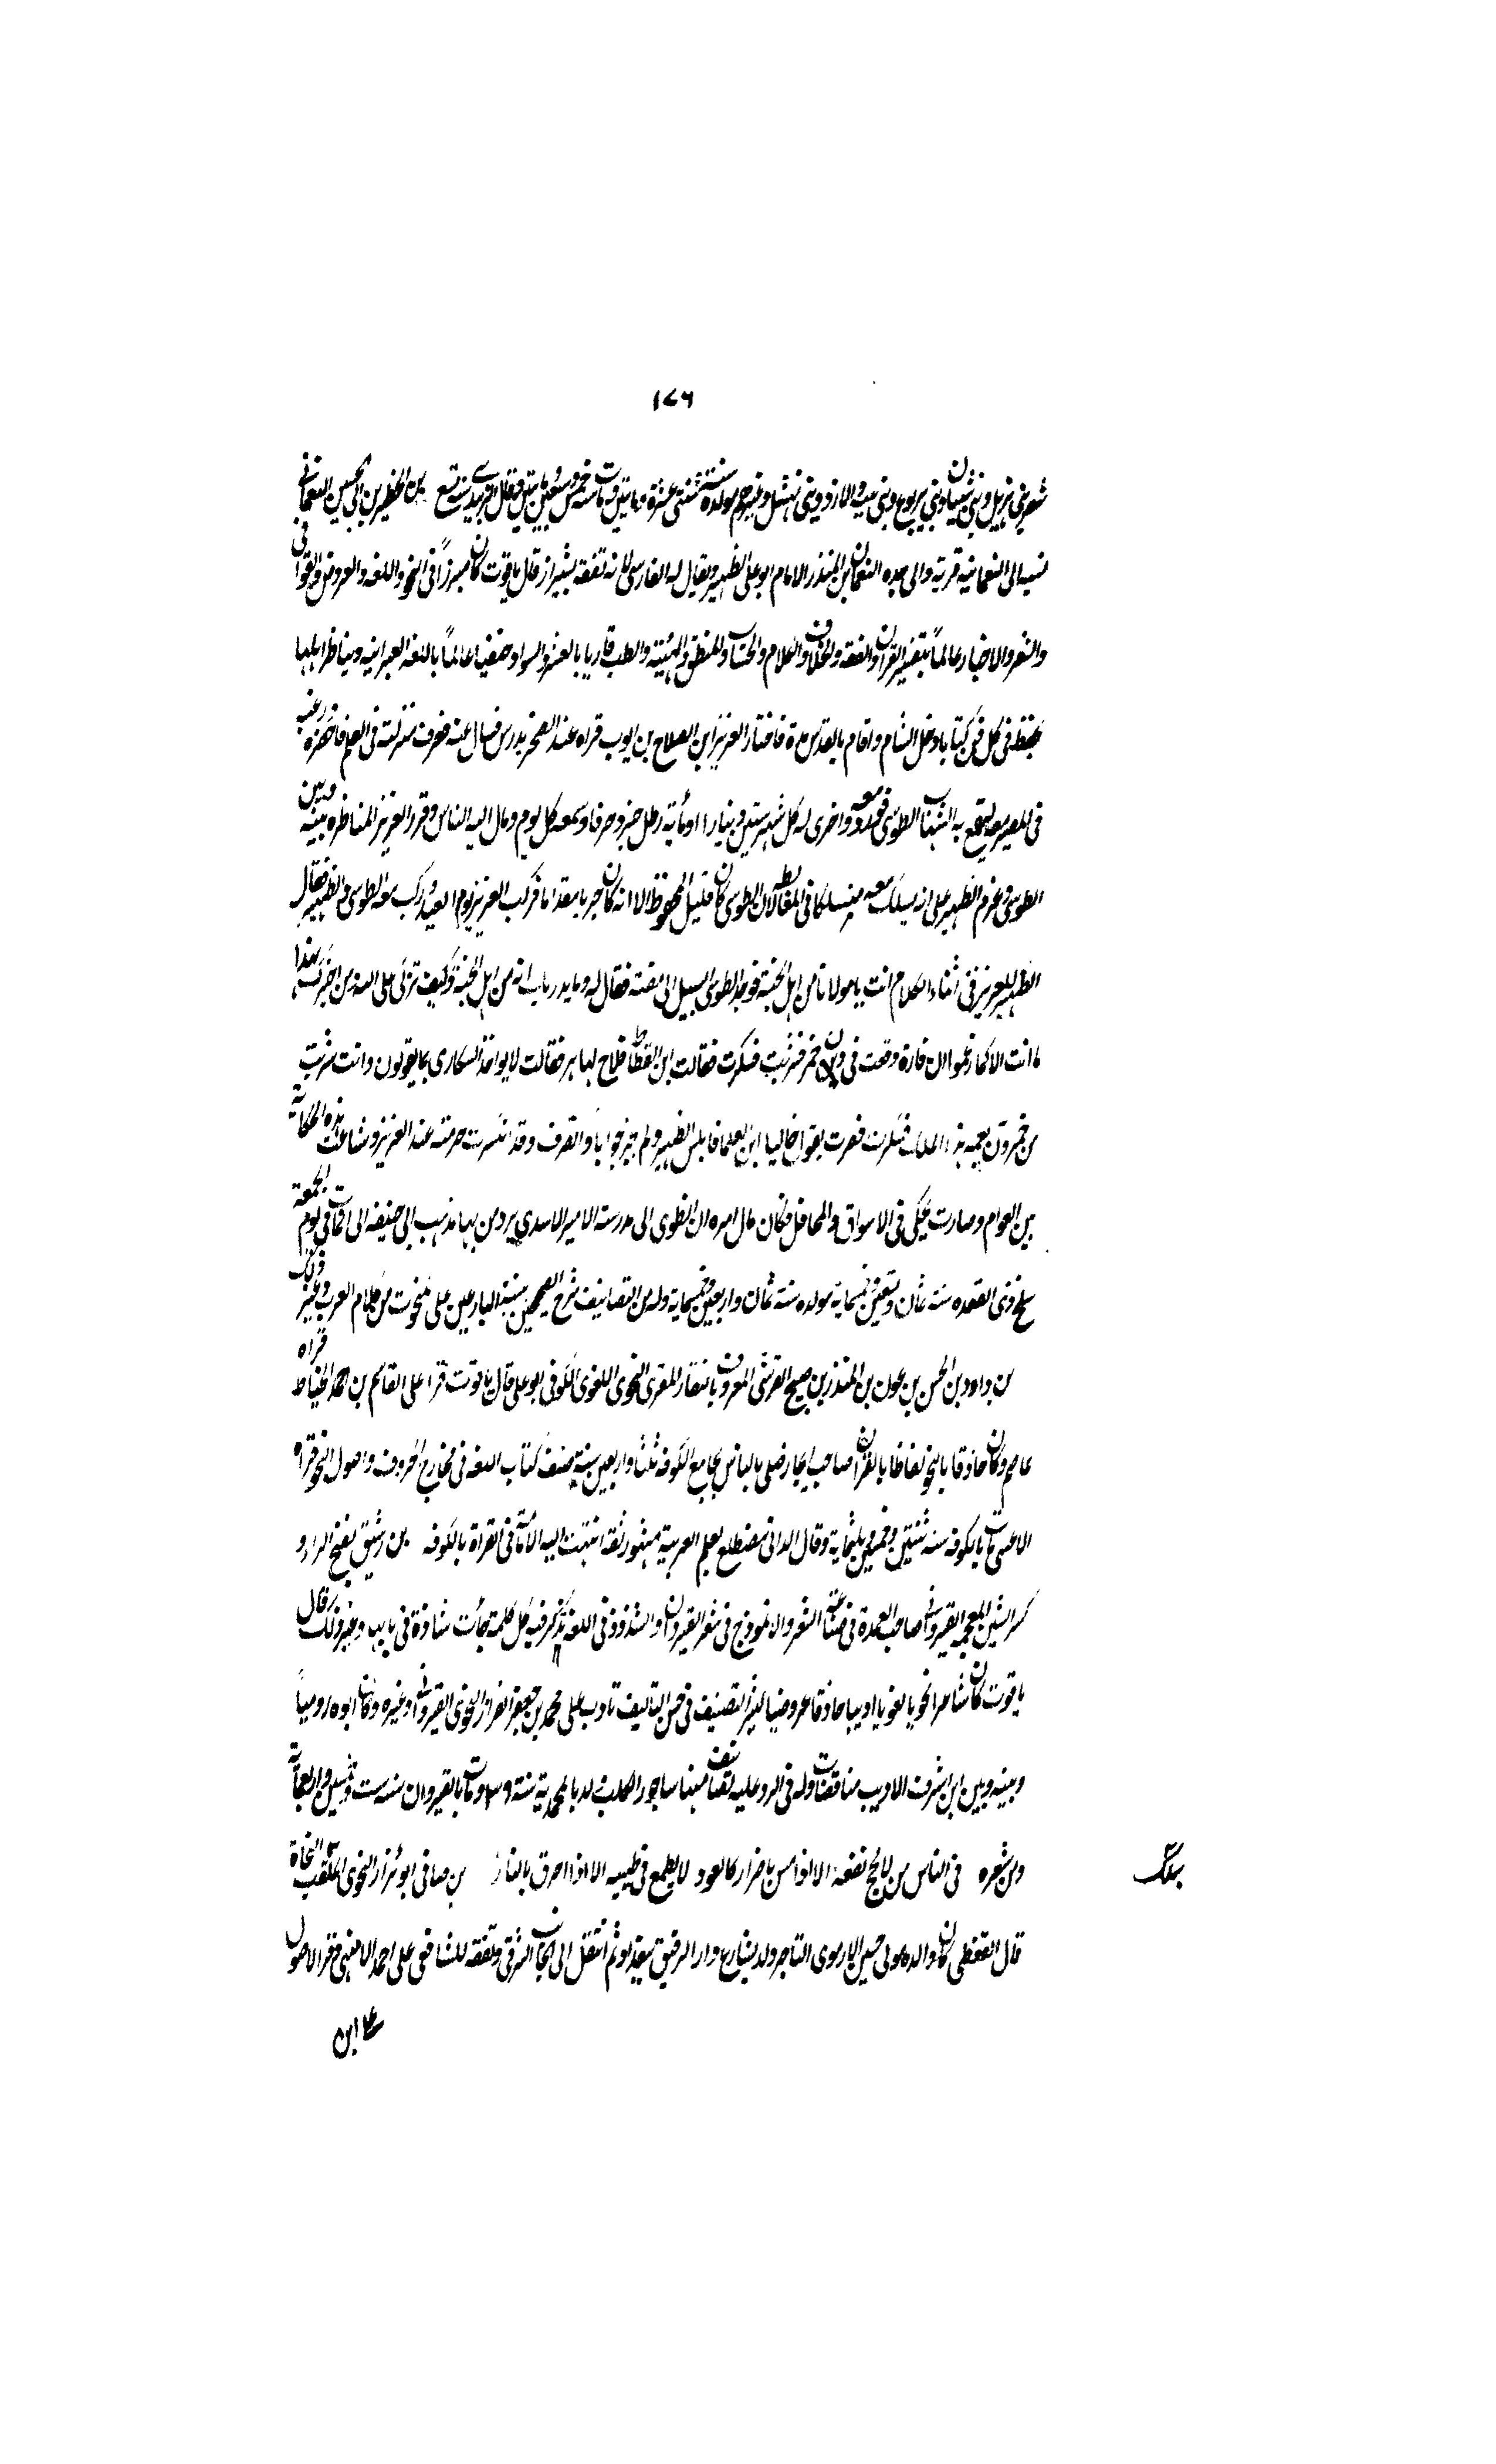 ١٧٦
شعر بني هذيل وبني شيبان وبني يربوع وبني ضبة والازد وبني نهشل وغيرهم مولده سنة ثنتي عشرة ومايتين ومات سنة خمس وسبعين ومايتين وقيل سنة تسع بن الخطير بن ابي الحسين النعماني
نسبه الى النعمانية قرية والى جده النعمان بن المنذر الامام ابو علي الظهير ويقال له الفارسي لانه تفقه بشيراز قال ياقوت كان مبرزاً في النحو واللغه والعروض والقوافي
والشعر والاخبار عالماً بتفسير القران والفقه والخلاف والكلام والحساب والمنطق والهيئة والطب قاريا بالعشر والشواذ حنفيا عالماً باللغه العبرانيه ويناظر اهلها
يحفظ في كل فن كتابا دخل الشام واقام بالقدس مدة فاختار العزيز ابن الصلاح بن ايوب فراه عند الصخرة يدرس فسال عنه فعرف منزلته في العلم فاحضره ورغبه
في المصير معه ليقمع به الشهاب الطوسي فورد معه واجرى له كل شهر ستين دينارا ومائة رطل خبز وخروفا وشمعه كل يوم ومال اليه الناس وقرر العزيز المناظره بينه وبين
الطوسي وعزم الظهير على ان يسلك معه مسلكا في المغالطة لان الطوسي كان قليل المحفوظ الا انه كان جريا مقداما فركب العزيز يوم العيد وركب معه الطوسي والظهير فقال
الظهير للعزيز في اثناء الكلام انت يا مولانا من اهل الجنة فوجد الطوسي السبيل الى مقته فقال له وما يدريك انه من اهل الجنة وكيف تزكي على الله من اخبرك بهذا
ما انت الا كما زعموا ان فارة وقعت في دن خمر فشربت فسكرت فقالت اين القطاط فلاح لها هر فقالت لا يواخذ السكارى بما يقولون وانت شربت
من خمر دن نعمة هذا الملك فسكرت فصرت تقول خاليا اين العلما فابلس الظهير ولم يحر جوابا وانصرف وقد انكسرت حرمته عند العزيز وشاعت هذه الحكاية
بين العوام وصارت تحكى في الاسواق والمحافل فكان مال امره ان انضوى الى مدرسة الامير الاسدي يدرس بها مذهب ابي حنيفه الى ان مات في يوم الجمعة
سلخ ذي القعده سنه ثمان وتسعين وخمسماية مولده سنة ثمان واربعين وخمسماية وله من التصانيف شرح الصحيحين تنبيه البارعين على المنحوت من كلام العرب وغير ذلك
بن داود بن الحسن بن عون بن المنذر بن صبيح القرشي المعروف بالنقار المقري النحوي اللغوي الكوفي ابو علي قال ياقوت قرا على القاسم بن احمد الخياط قراه
عاصم وكان حاذقا بالنحو لفاظا بالقران صاحب الحان صلى بالناس بجامع الكوفه ثلثا واربعين سنة صنف كتاب اللغه في مخارج الحروف واصول النحو قراه
الاعشى مات بالكوفه سنه ثنتين وخمسين وثلثماية وقال الداني مضطلع بعلم العربية مشهور ثقة انتهت اليه الامامة في القراة بالكوفه بن رشيق بفتح الراء و
كسر الشين المعجمه القيرواني صاحب العمدة في صناعة الشعر والانموذج في شعر القيروان والشذوذ في اللغه يذكر فيه كل كلمة جأت شاذة في بابها وغير ذلك قال
ياقوت كان شاعرا نحويا لغويا اديبا حاذقا عروضيا كثير التصنيف في حسن التاليف تادب على محمد بن جعفر القزاز النحوي القيرواني وغيره وكان ابوه روميا
وبينه وبين ابن شرف الاديب مناقضات وله في الرد عليه تصانيف منها ساجور الكلب ولد بالمحمدية سنة ٣٩٠ ومات بالقيروان سنه ست وخمسين واربعماية
ومن شعره في الناس من لا يرتجى نفعه الا اذا مس باضرار كالعود لا يطمع في طيبه الا اذا احرق بالنار بن صافي ابو نزار النحوي الملقب ملك النحاة
قال القفطي كان والده مولى حسين الارموي التاجر ولد بشارع دار الرقيق ببغداد ثم انتقل الى الجانب الشرقي وتفقه للشافعي على احمد الاشنهي وقرا الاصول
على ابن